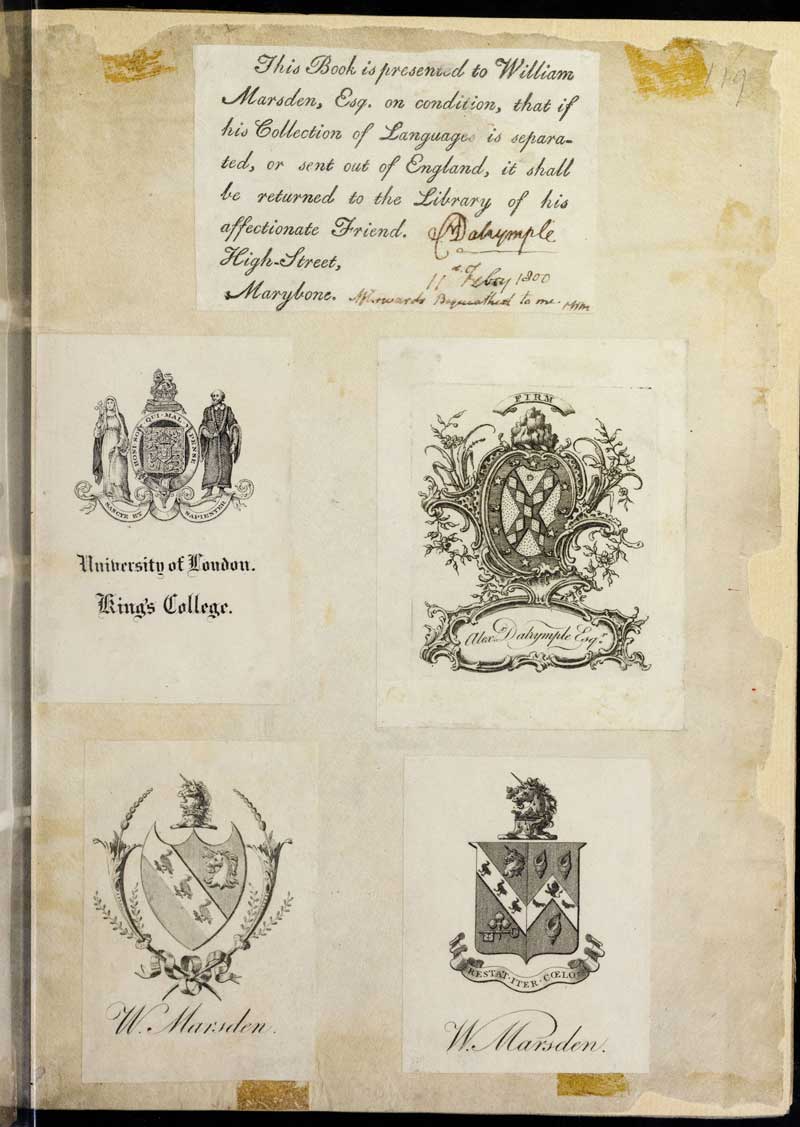 119
This Book is presented to William
Marsden, Esq. on condition, that if
his Collection of Languages is separa-
ted, or sent out of England, it shall
be returned to the Library of his
affectionate Friend. Dalrymple
High-Street,
11th Febry 1800
Marybone. Afterwards Bequeathed to me. WM
HONI SOIT QUI MAL Y PENSE
SANCTE ET SAPIENTER
University of London.
King's College.
FIRM
Alexr. Dalrymple Esqr.
W. Marsden.
RESTAT·ITER·CŒLO
W. Marsden.